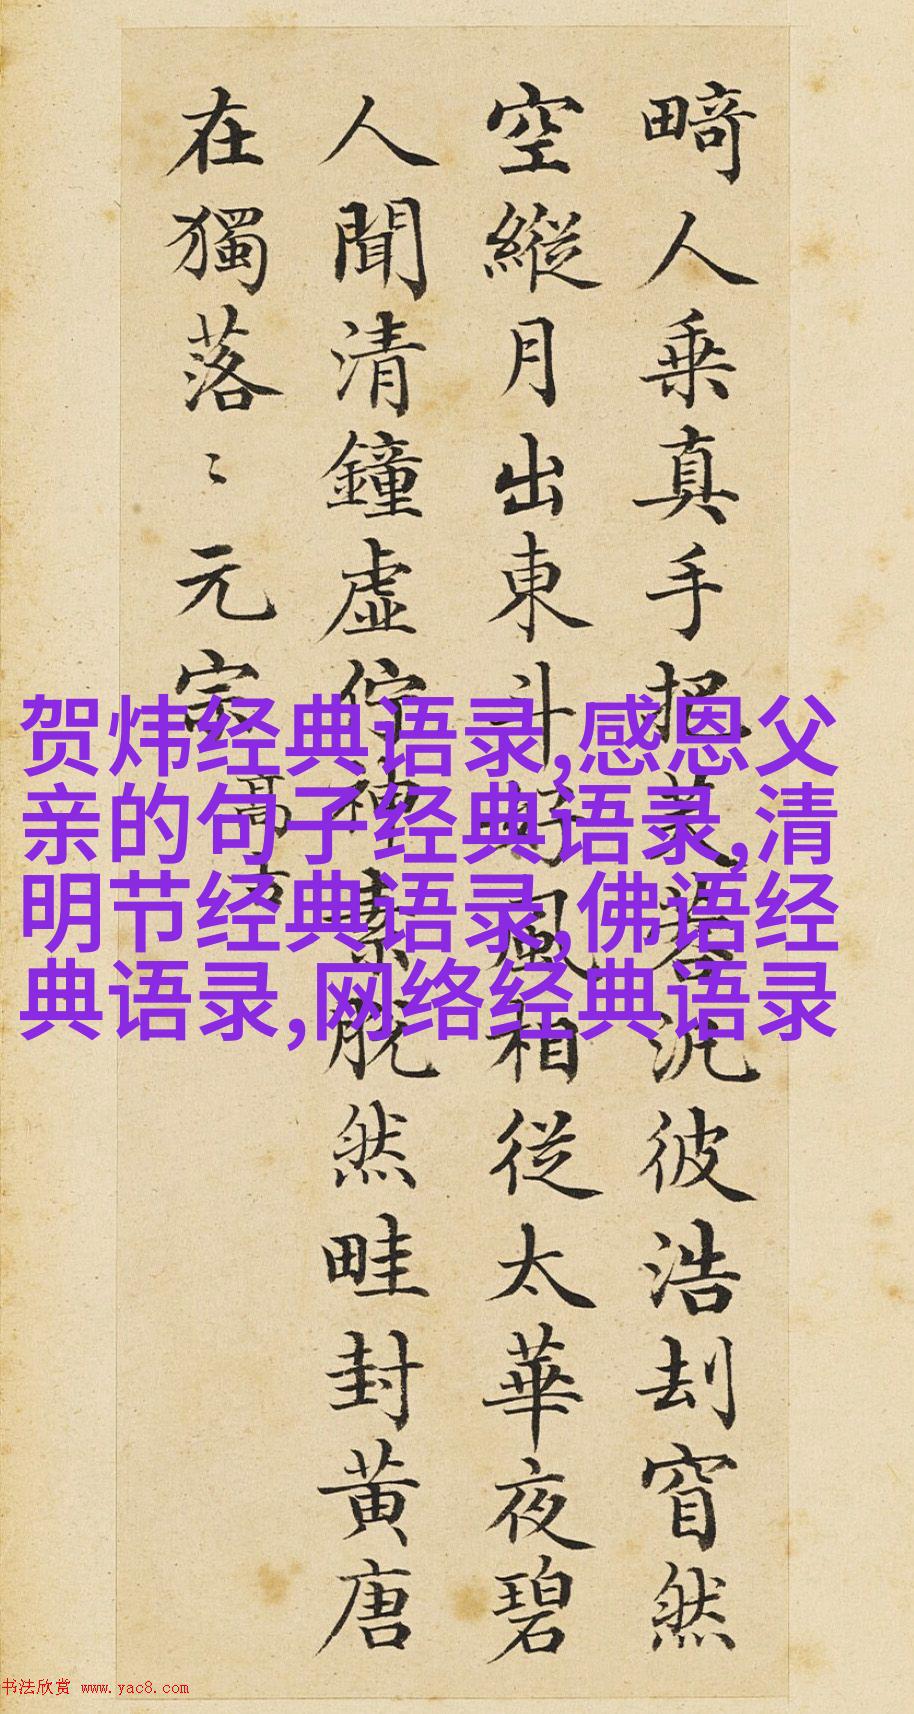 畸人乘真手把芙蓉汎彼浩刦窅然
空縱月出東斗好風相從太華夜碧
人聞清鐘虚佇神素脫然畦封黃唐
在獨落〻元宗
高古
贺炜经典语录,感恩父
亲的句子经典语录,清
明节经典语录,佛语经
典语录,网络经典语录
书法欣赏 www.yac8.com